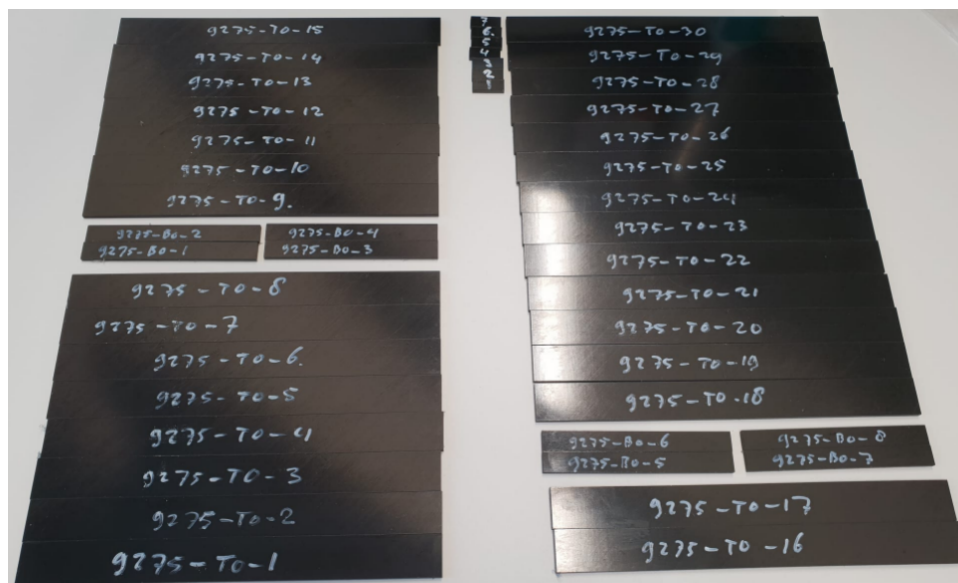 9275-TO-15
9275-TO-14
9275-TO-13
9275-TO-12
9275-TO-11
9275-TO-10
9275-TO-9.
9275-BO-2
9275-BO-4
9275-BO-1
9275-BO-3
9275-TO-8
9275-TO-7
9275-TO-6.
9275-TO-5
9275-TO-4
9275-TO-3
9275-TO-2
9275-TO-1
7.
6.
5
4
3
2
1
9275-TO-30
9275-TO-29
9275-TO-28
9275-TO-27
9275-TO-26
9275-TO-25
9275-TO-24
9275-TO-23
9275-TO-22
9275-TO-21
9275-TO-20
9275-TO-19
9275-TO-18
9275-BO-6
9275-BO-8
9275-BO-5
9275-BO-7
9275-TO-17
9275-TO-16